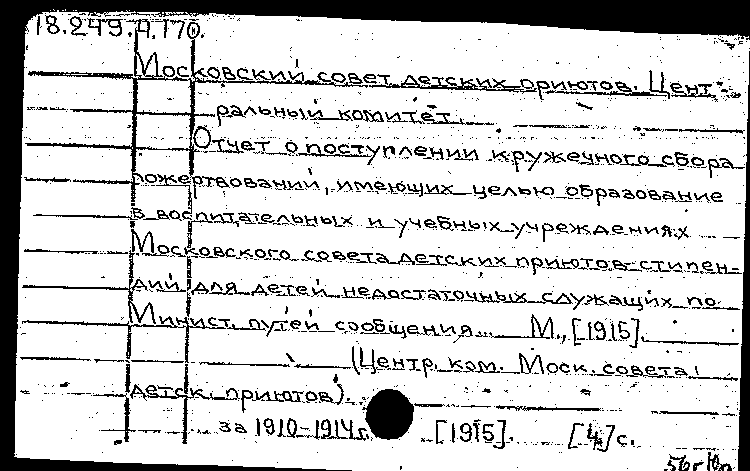 18.249.4.170.
Московский совет детских приютов. Цент-
ральный комитет.
Отчет о поступлении кружечного сбора
пожертвований, имеющих целью образование
в воспитательных и учебных учреждениях
Московского совета детских приютов стипен-
дий для детей недостаточных служащих по
Минист. путей сообщения... М., [1915].
(Центр. ком. Моск. совета
детск. приютов).
за 1910-1914г. [1915]. [4] с.